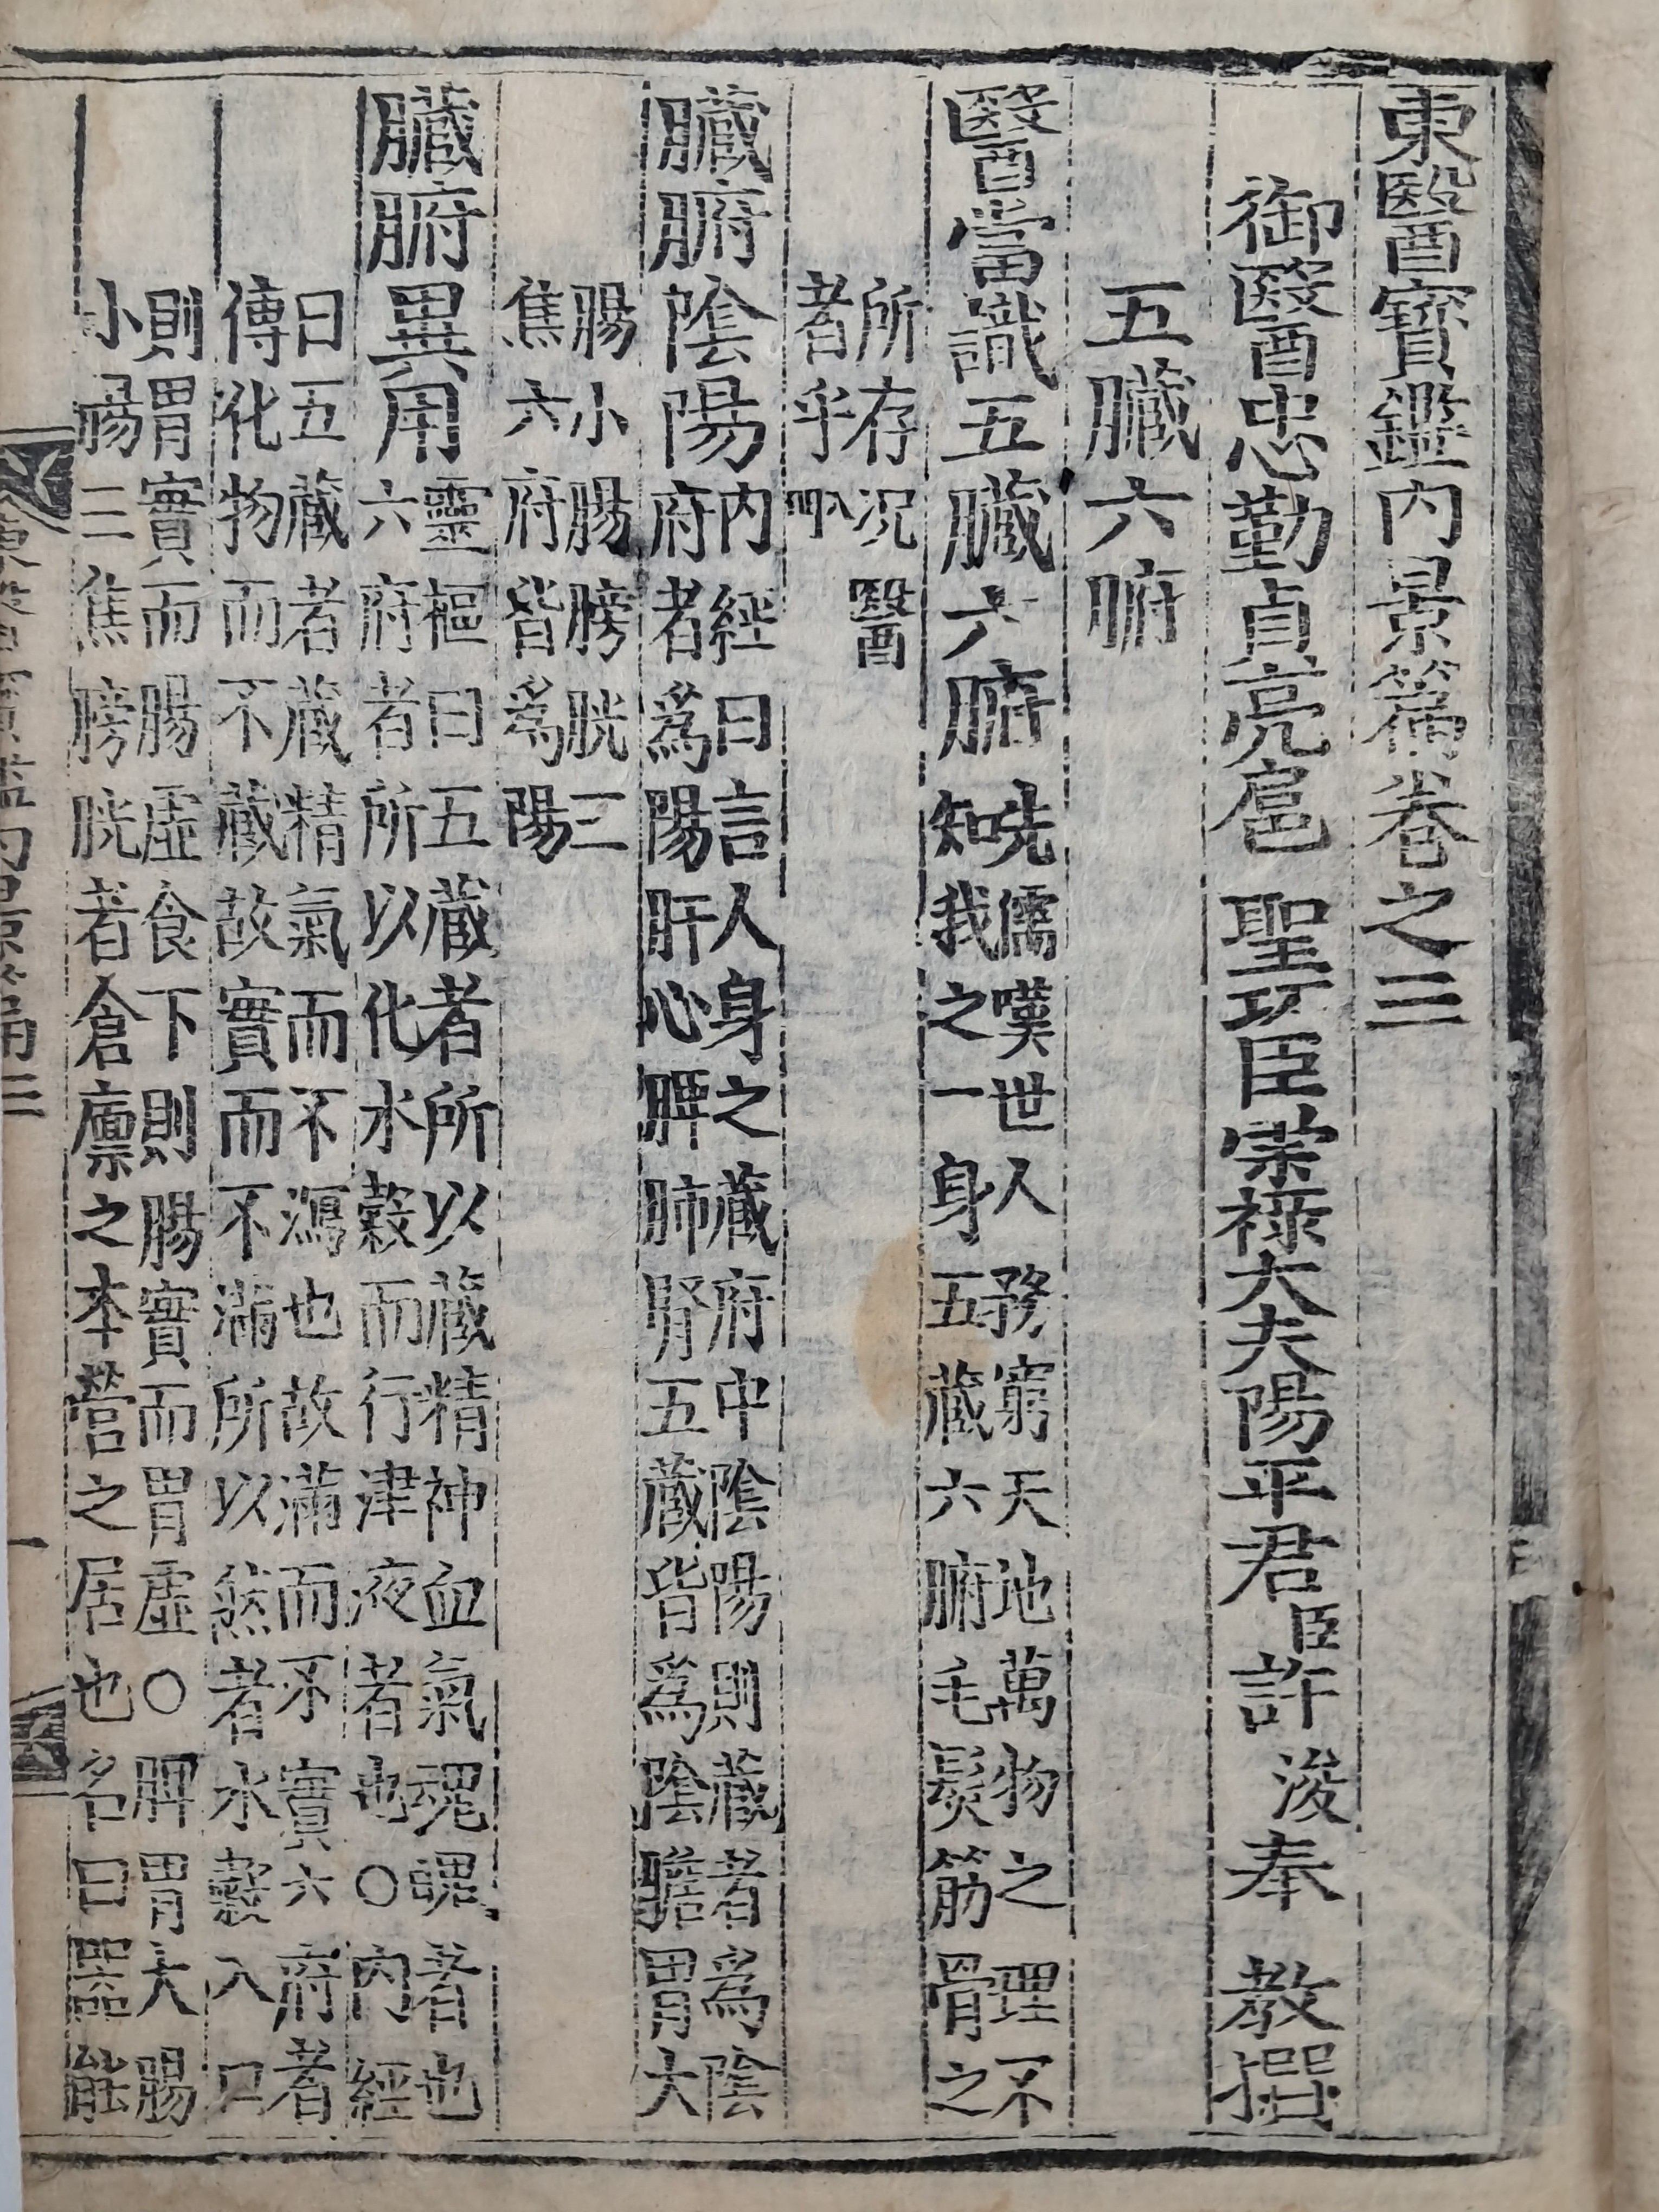 東醫寶鑑內景篇卷之三
御醫忠勤貞亮扈 聖功臣崇祿大夫陽平君臣許 浚奉 教撰
五臟六腑
醫當識五臟六腑
先儒嘆世人務窮天地萬物之理不
知我之一身五藏六腑毛髮筋骨之
所存况醫
者乎
臟腑陰陽
內經曰言人身之藏府中陰陽則藏者爲陰
府者爲陽肝心脾肺腎五藏皆爲陰膽胃大
腸小腸膀胱三
焦六府皆爲陽
臟腑異用
靈樞曰五藏者所以藏精神血氣魂魄者也
六府者所以化水穀而行津液者也○內經
曰五藏者藏精氣而不瀉也故滿而不實六府者
傳化物而不藏故實而不滿所以然者水穀入口
則胃實而腸虛食下則腸實而胃虛○脾胃大腸
小腸三焦膀胱者倉廩之本營之居也名曰器能
東醫寶鑑內景篇三
一